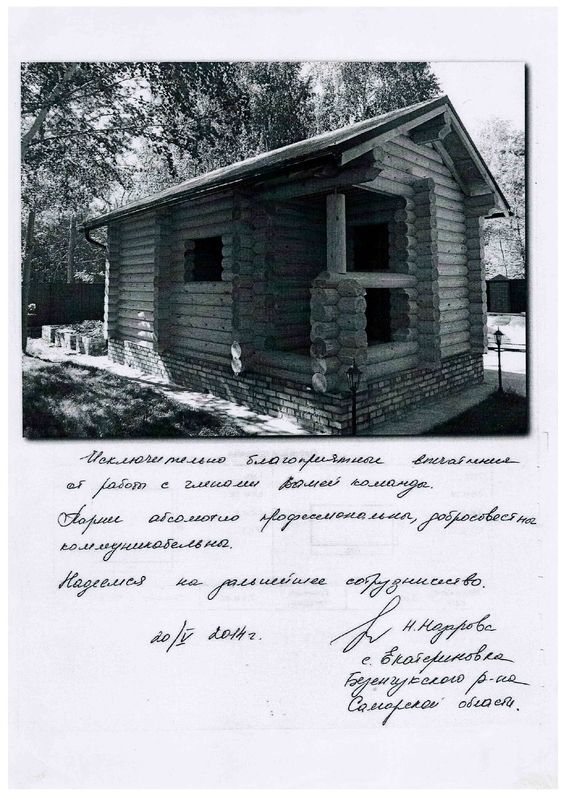 Исключительно благоприятные впечатления
от работы с членами Вашей команды.
Парни абсолютно профессиональны, добросовестны
коммуникабельны.
Надеемся на дальнейшее сотрудничество.
20/V 2014г.
с. Екатериновка
Безенчукского р-на
Самарской области.